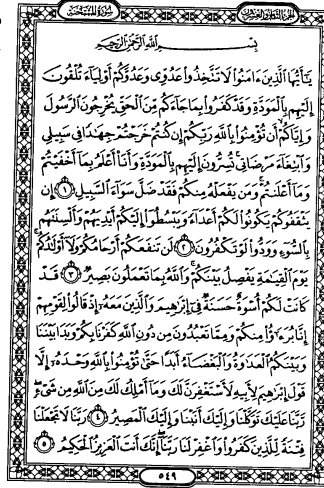 الجزء الثامن والعشرون سورة الممتحنة
بسم الله الرحمن الرحيم
يَٰٓأَيُّهَا ٱلَّذِينَ ءَامَنُوا۟ لَا تَتَّخِذُوا۟ عَدُوِّى وَعَدُوَّكُمْ أَوْلِيَآءَ تُلْقُونَ
إِلَيْهِم بِٱلْمَوَدَّةِ وَقَدْ كَفَرُوا۟ بِمَا جَآءَكُم مِّنَ ٱلْحَقِّ يُخْرِجُونَ ٱلرَّسُولَ
وَإِيَّاكُمْ أَن تُؤْمِنُوا۟ بِٱللَّهِ رَبِّكُمْ إِن كُنتُمْ خَرَجْتُمْ جِهَٰدًا فِى سَبِيلِى
وَٱبْتِغَآءَ مَرْضَاتِى تُسِرُّونَ إِلَيْهِم بِٱلْمَوَدَّةِ وَأَنَا۠ أَعْلَمُ بِمَآ أَخْفَيْتُمْ
وَمَآ أَعْلَنتُمْ وَمَن يَفْعَلْهُ مِنكُمْ فَقَدْ ضَلَّ سَوَآءَ ٱلسَّبِيلِ ١ إِن
يَثْقَفُوكُمْ يَكُونُوا۟ لَكُمْ أَعْدَآءً وَيَبْسُطُوٓا۟ إِلَيْكُمْ أَيْدِيَهُمْ وَأَلْسِنَتَهُم
بِٱلسُّوٓءِ وَوَدُّوا۟ لَوْ تَكْفُرُونَ ٢ لَن تَنفَعَكُمْ أَرْحَامُكُمْ وَلَآ أَوْلَٰدُكُمْ
يَوْمَ ٱلْقِيَٰمَةِ يَفْصِلُ بَيْنَكُمْ وَٱللَّهُ بِمَا تَعْمَلُونَ بَصِيرٌ ٣ قَدْ
كَانَتْ لَكُمْ أُسْوَةٌ حَسَنَةٌ فِىٓ إِبْرَٰهِيمَ وَٱلَّذِينَ مَعَهُۥٓ إِذْ قَالُوا۟ لِقَوْمِهِمْ
إِنَّا بُرَءَٰٓؤُا۟ مِنكُمْ وَمِمَّا تَعْبُدُونَ مِن دُونِ ٱللَّهِ كَفَرْنَا بِكُمْ وَبَدَا بَيْنَنَا
وَبَيْنَكُمُ ٱلْعَدَٰوَةُ وَٱلْبَغْضَآءُ أَبَدًا حَتَّىٰ تُؤْمِنُوا۟ بِٱللَّهِ وَحْدَهُۥٓ إِلَّا
قَوْلَ إِبْرَٰهِيمَ لِأَبِيهِ لَأَسْتَغْفِرَنَّ لَكَ وَمَآ أَمْلِكُ لَكَ مِنَ ٱللَّهِ مِن شَىْءٍ
رَّبَّنَا عَلَيْكَ تَوَكَّلْنَا وَإِلَيْكَ أَنَبْنَا وَإِلَيْكَ ٱلْمَصِيرُ ٤ رَبَّنَا لَا تَجْعَلْنَا
فِتْنَةً لِّلَّذِينَ كَفَرُوا۟ وَٱغْفِرْ لَنَا رَبَّنَآ إِنَّكَ أَنتَ ٱلْعَزِيزُ ٱلْحَكِيمُ ٥
٥٤٩